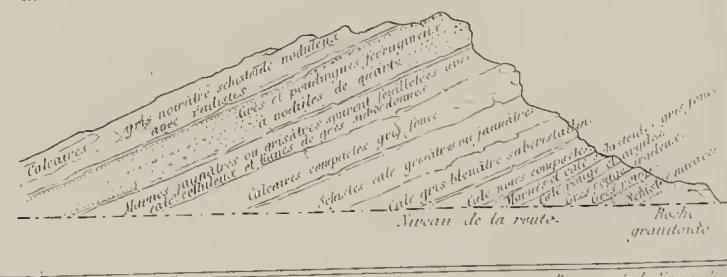 Calcaires gris noirâtre schistoide noduleux
avec rudistes
Grès et poudingues ferrugineux
à nodules de quartz
Marnes jaunâtres ou grisâtres souvent feuilletées avec
calc. celluleux et bancs de grès subordonnés
Calcaires compactes gris foncé
Schistes calc. grisâtres ou jaunâtres
Calc. gris bleuâtre subcristallin.
Calc. noirs compactes
Marnes et calc. gris foncé
Calc. rouge
Grès rouge
Grès
Schistes micacés
Roche
granitoide
Niveau de la route.